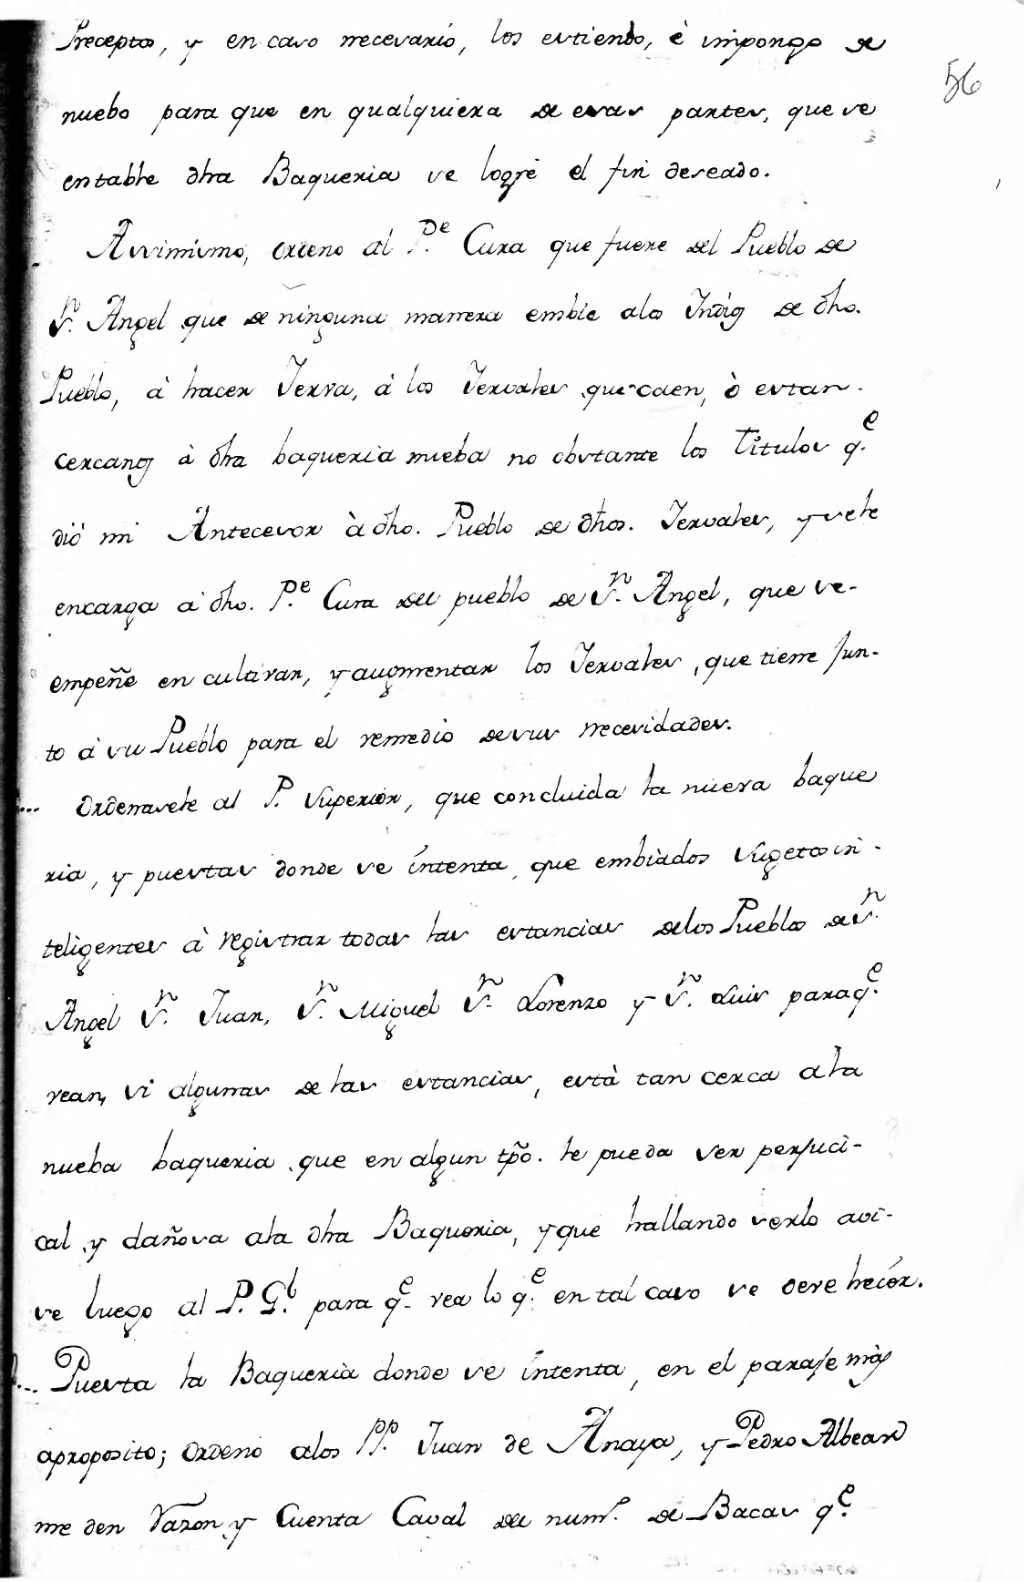 56
Preceptos, y en caso necesario, los extiendo, è impongo de
nuebo para que en qualquiera de esas partes, que se
entable dha Baqueria se logre el fin deseado.
Assimismo, ordeno al P.e Cura que fuere del Pueblo de
S.n Angel que de ninguna manera embie a los Indios de dho.
Pueblo, à hacer Yerva, á los Yervales que caen, ò estan
cercanos à dha baqueria nueba no obstante los Titulos q.e
dió mi Antecesor à dho. Pueblo de dhos. Yervales, y se le
encarga a dho. P.e Cura del pueblo de S.n Angel, que se-
empeñe en cultivar, y augmentar los Yervales, que tiene jun-
to à su Pueblo para el remedio de sus necesidades.
Ordenasele al P. Superior, que concluida la nueva baque
ria, y puestas donde se intenta, que embiados sugetos in-
teligentes à registrar todas las estancias de los Pueblos de S.n
Angel S.n Juan, S.n Miguel S.n Lorenzo y S.n Luis para q.e
vean, si algunas de las estancias, està tan cerca a la
nueba baqueria que en algun tpõ. le pueda ser perjuci-
cal y dañosa a la dha Baqueria, y que hallando serlo avi-
se luego al P. G.l para q.e vea lo q.e en tal caso se deve hecér.
Puesta la Baqueria donde se intenta, en el paraje más
aproposito; ordeno a los PP. Juan de Anaya, y Pedro Albear
me den Razon y Cuenta Caval del num.o de Bacas q.e